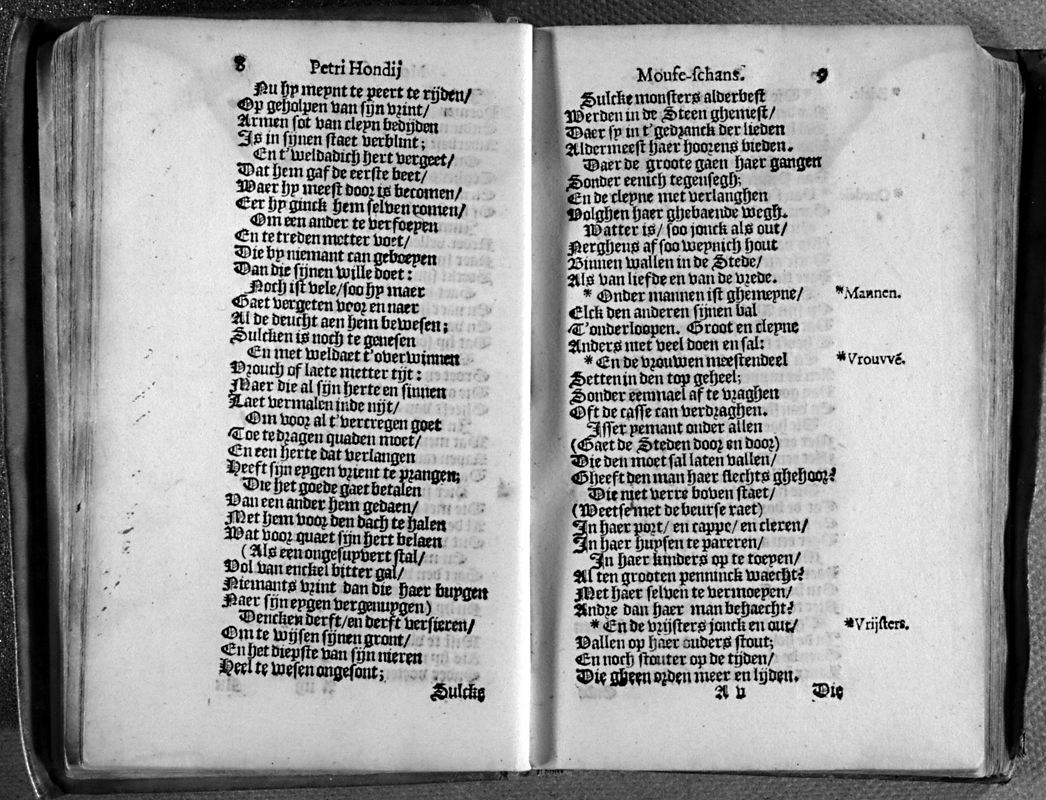 8 Petri Hondij
Nu hy meynt te peert te rijden/
Op geholpen van sijn vrint/
Armen sot van cleyn bedijden
Is in sijnen staet verblint;
En t'weldadich hert vergeet/
Dat hem gaf de eerste beet/
Waer hy meest door is becomen/
Eer hy ginck hem selven romen/
Om een ander te verfoeyen
En te treden metter voet/
Die by niemant can geboeyen
Dan die sijnen wille doet:
Noch ist vele/soo hy maer
Gaet vergeten voor en naer
Al de deucht aen hem bewesen;
Sulcken is noch te genesen
En met weldaet t'overwinnen
Vrouch of laete metter tijt:
Maer die al sijn herte en sinnen
Laet vermalen inde nijt/
Om voor al t'vercregen goet
Toe te dragen quaden moet/
En een herte dat verlangen
Heeft sijn eygen vrient te prangen;
Die het goede gaet betalen
Van een ander hem gedaen/
Met hem voor den dach te halen
Wat voor quaet sijn hert belaen
(Als een ongesuyvert stal/
Vol van enckel bitter gal/
Niemants vrint dan die haer buygen
Naer sijn eygen vergenuygen)
Dencken derft/en derft versieren/
Om te wijsen sijnen gront/
En het diepste van sijn nieren
Heel te wesen ongesont;
Sulcke
Mouse-schans. 9
Sulcke monsters alderbest
Werden in de Steen ghemest/
Daer sy in t'gedranck der lieden
Aldermeest haer hoorens bieden.
Daer de groote gaen haer gangen
Sonder eenich tegensegh;
En de cleyne met verlanghen
Volghen haer ghebaende wegh.
Watter is/ soo jonck als out/
Nerghens af soo weynich hout
Binnen wallen in de Stede/
Als van liefde en van de vrede.
* Onder mannen ist ghemeyne/
*Mannen.
Elck den anderen sijnen val
T'onderloopen. Groot en cleyne
Anders met veel doen en sal:
* En de vrouwen meestendeel
*Vrouvvé.
Setten in den top geheel;
Sonder eenmael af te vraghen
Oft de casse can verdraghen.
Isser yemant onder allen
(Gaet de Steden door en door)
Die den moet sal laten vallen/
Gheeft den man haer slechts ghehoor?
Die niet verre boven staet/
(Weetse met de beurse raet)
In haer port/ en cappe/ en cleren/
In haer huysen te pareren/
In haer kinders op te toeyen/
Al ten grooten penninck waecht?
Met haer selven te vermoeyen/
Andre dan haer man behaecht?
* En de vrijsters jonck en out/
*Vrijsters.
Vallen op haer ouders stout;
En noch stouter op de tijden/
Die gheen orden meer en lijden.
A v Die